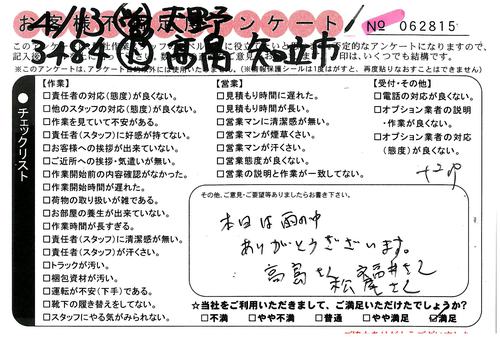 お客様不満足度アンケート
№ 062815
4/13 天野
3484 高畠 矢迫巾
※(このアンケートは、アンケート目的以外には使用いたしません。)(※情報保護シールは1度はがすと、再度貼りなおすことはできません)
チェックリスト
【作業】
□責任者の対応(態度)が良くない。
□他のスタッフの対応(態度)が良くない。
□作業を見ていて不安がある。
□責任者(スタッフ)に好感が持てない。
□お客様への挨拶が出来ていない。
□ご近所への挨拶・気遣いが無い。
□作業開始前の内容確認がなかった。
□作業開始時間が遅れた。
□荷物の取り扱いが雑である。
□お部屋の養生が出来ていない。
□作業時間が長すぎる。
□責任者(スタッフ)に清潔感が無い。
□責任者(スタッフ)が汗くさい。
□トラックが汚い。
□梱包資材が汚い。
□運転が不安(下手)である。
□靴下の履き替えをしてない。
□スタッフにやる気がみられない。
【営業】
□見積もり時間に遅れた。
□見積もり時間が長い。
□営業マンに清潔感が無い。
□営業マンが煙草くさい。
□営業マンが汗くさい。
□営業態度が良くない。
□営業の説明と作業が一致してない。
【受付・その他】
□電話の対応が良くない。
□オプション業者の説明
・作業が良くない。
□オプション業者の対応
(態度)が良くない。
その他、ご意見・ご要望等ありましたらお書き下さい。
本日は雨の中
ありがとうございます。
高畠さん 福井さん
松尾さん
☆当社をご利用いただきまして、ご満足いただけたでしょうか?
□不満 □やや不満 □普通 □やや満足 □満足